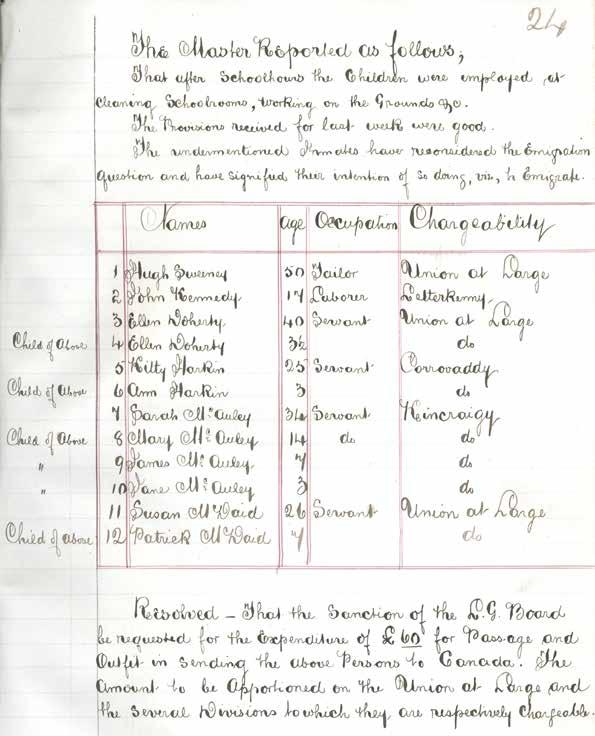 24
The Master Reported as follows;
That after Schoolhours the Children were employed at
cleaning Schoolrooms, Working on the Grounds &c.
The Provisions received for last week were good.
The undermentioned Inmates have reconsidered the Emigration
Question and have signified their intention of so doing, viz, to Emigrate.
Names age Occupation Chargeability
1 Hugh Sweeney 50 Tailor Union at Large
2 John Kennedy 17 Laborer Letterkenny
3 Ellen Doherty 40 Servant Union at Large
Child of above 4 Ellen Doherty 3½ do
5 Kitty Harkin 25 Servant Corrovaddy
Child of above 6 Ann Harkin 3 do
7 Sarah McAuley 34 Servant Kincraigy
Child of above 8 Mary McAuley 14 do do
" 9 James McAuley 7 do
" 10 Jane McAuley 3 do
11 Susan McDaid 26 Servant Union at Large
Child of above 12 Patrick McDaid 7 do
Resolved – That the Sanction of the L.G. Board
be requested for the Expenditure of £60 for Passage and
Outfit in Sending the above Persons to Canada. The
Amount to be Apportioned on the Union at Large and
the Several Divisions to which they are respectively Chargeable.